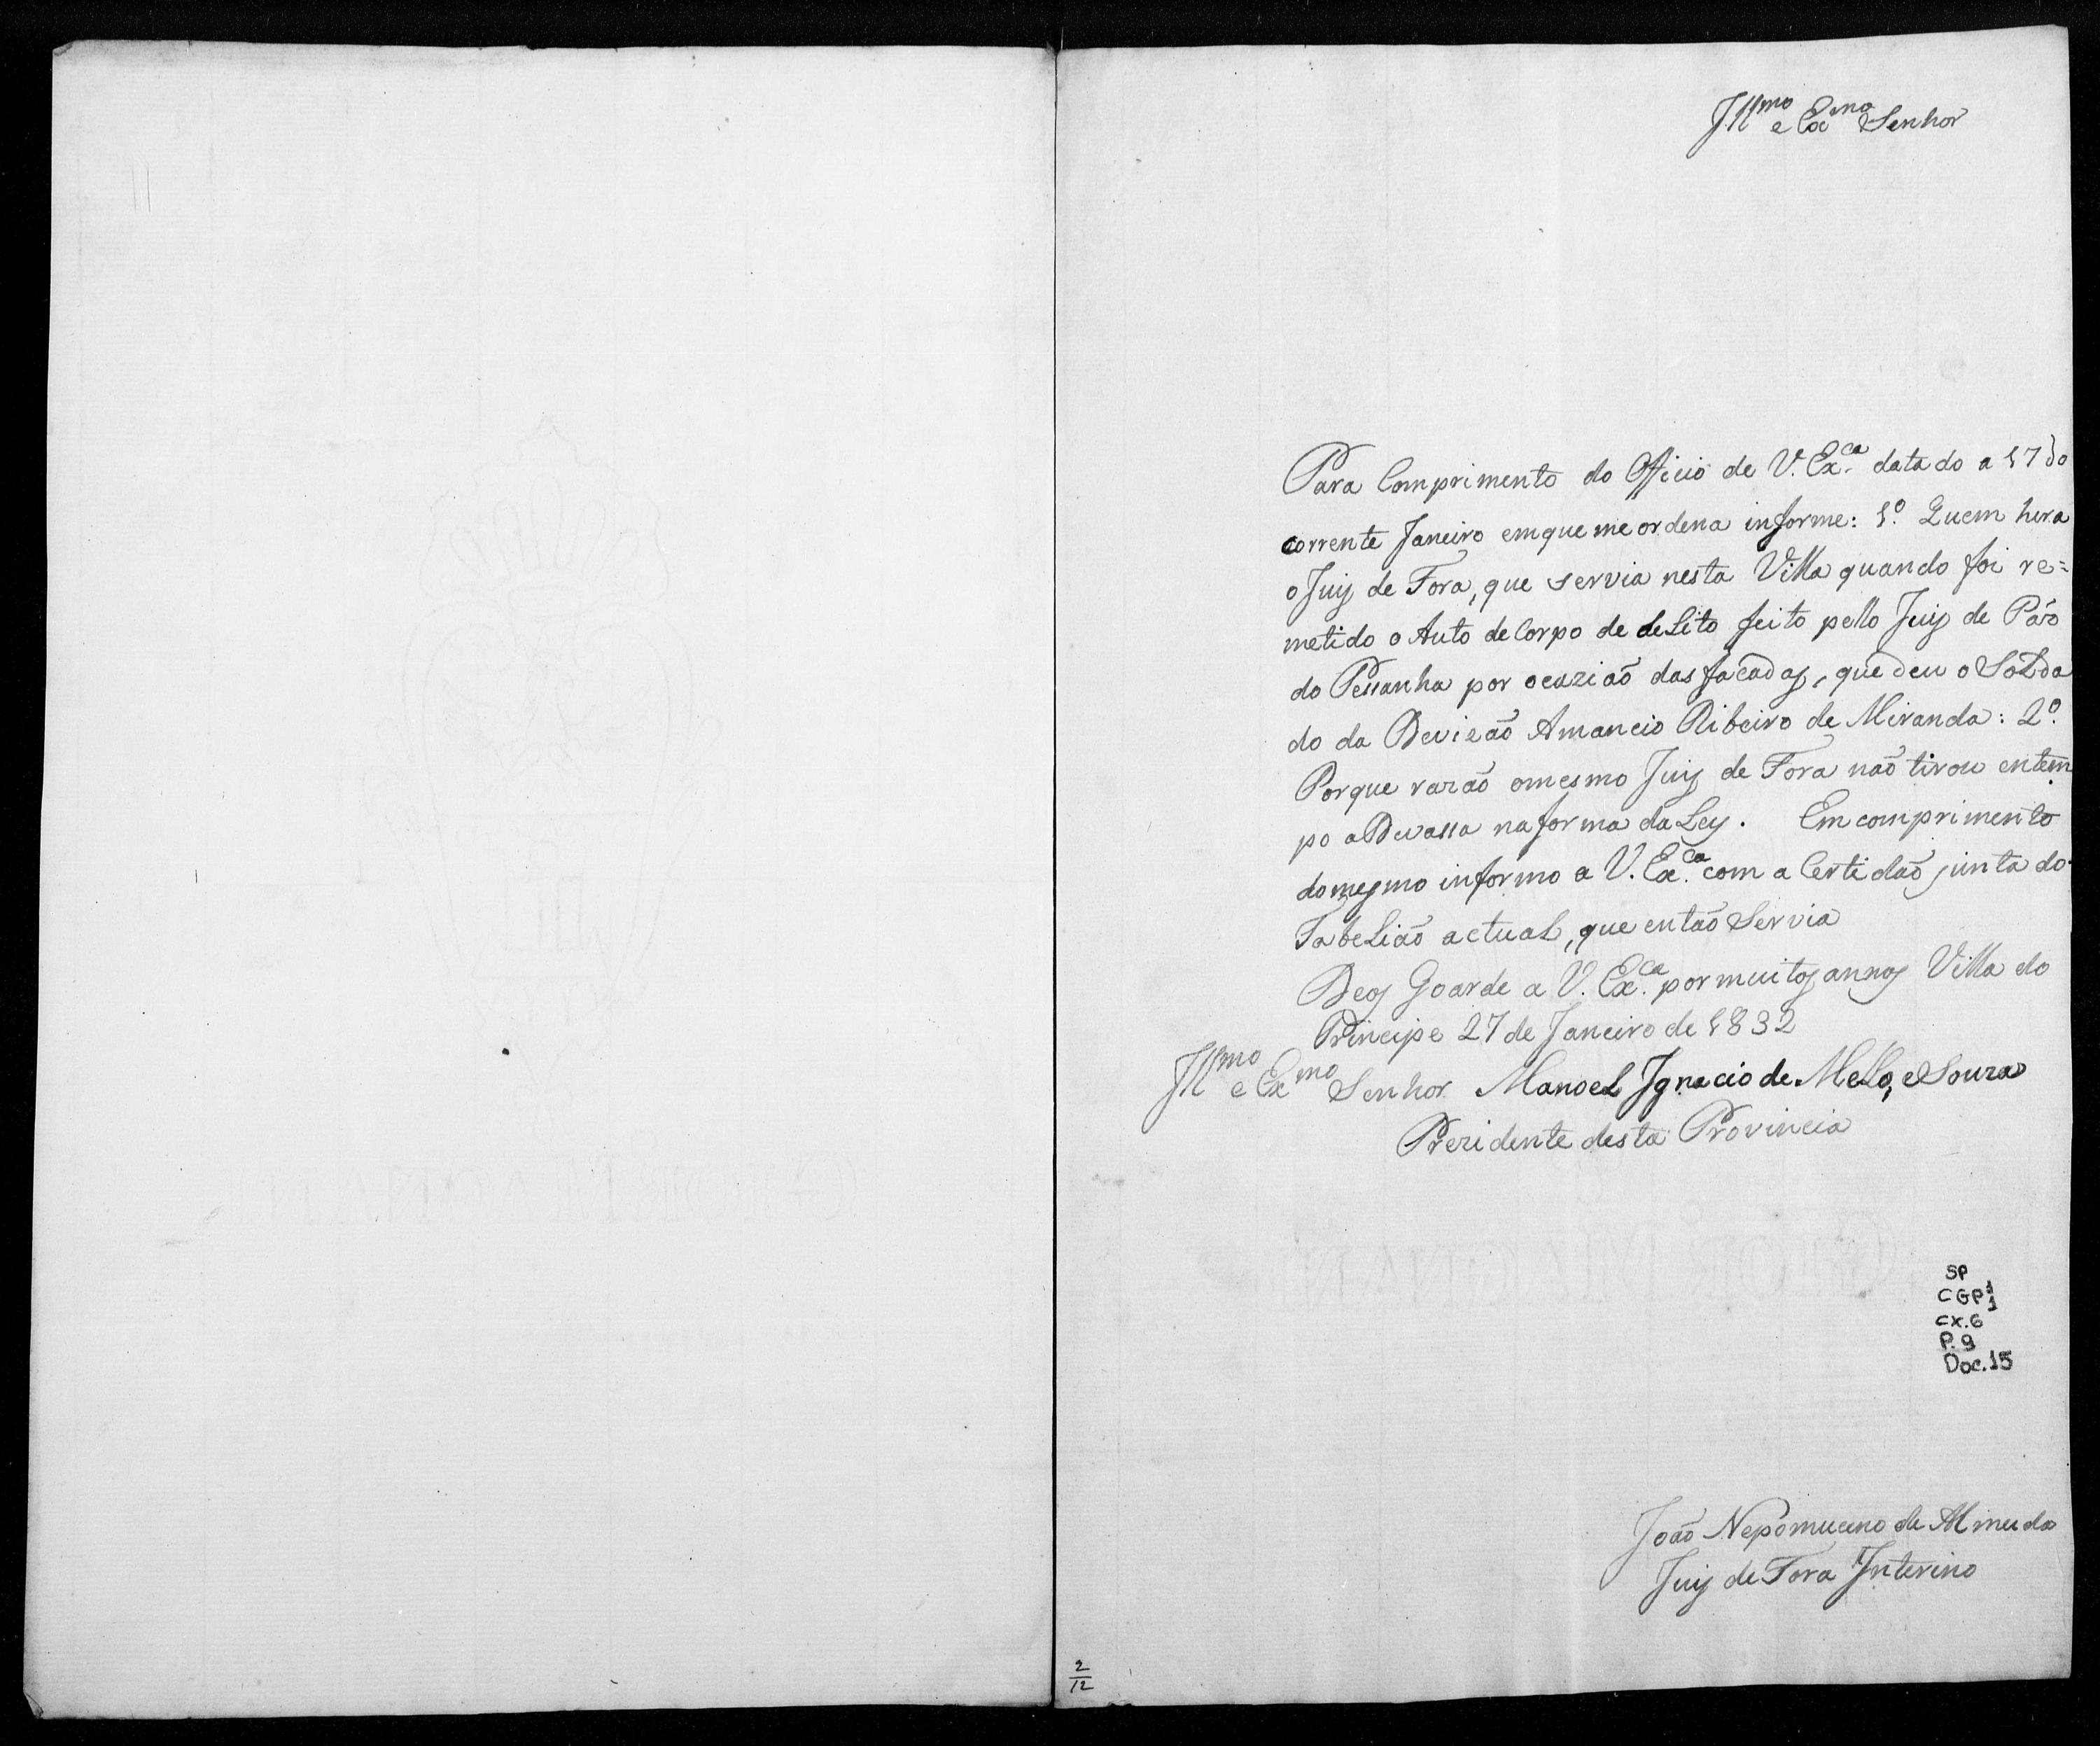 Illmo e Exmo Senhor
Para Comprimento do Officio de V. Exca datado a 17 do
corrente Janeiro emque me ordena informe: 1º Quem hera
o Juiz de Fora, que servia nesta Villa quando foi re=
metido o Auto de Corpo de delito feito pello Juiz de Pás
do Pessanha por ocazião das facadas, que deu o Solda
do da Devizão Amancio Ribeiro de Miranda: 2º
Porque razão omesmo Juiz de Fora não tirou entem
po a Devassa na forma da Ley. Em comprimento
do mesmo informo a V. Exca com a Certidão junta do
Tabelião actual, que então Servia
Deos Goarde a V. Exca por muitos annos Villa do
Principe 27 de Janeiro de 1832
Illmo e Exmo Senhor Manoel Ignacio de Mello, e Souza
Prezidente desta Provincia
SP
CGP1
1
CX.6
P.9
Doc.15
João Nepomuceno de Almeida
Juiz de Fora Interino
2
12
GIOR MAGNANI
GIOR MAGNANI